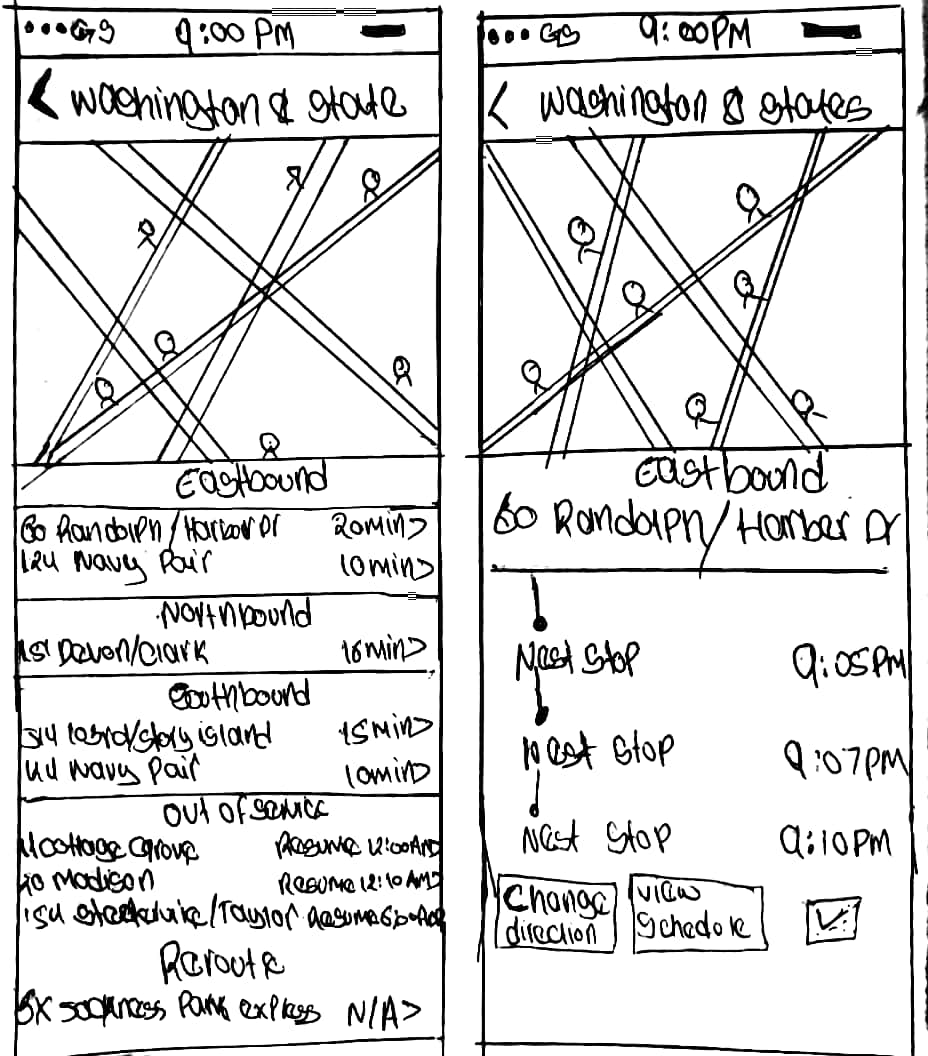 •••GS 9:00 PM
< Washington & State
Eastbound
60 Randolph/Harbor Dr 20min>
124 Navy Pair 10min>
Northbound
Devon/Clark 16min>
Southbound
15min>
Navy Pair 10min>
Out of service
Cottage Grove Resume 12:00AM
20 Madison Resume 12:10AM>
Taylor Resume
Reroute
Park express N/A>
•••GS 9:00PM
< Washington & States
Eastbound
60 Randolph/Harber Dr
Next Stop 9:05PM
Next Stop 9:07PM
Next Stop 9:10PM
Change direction
View Schedule